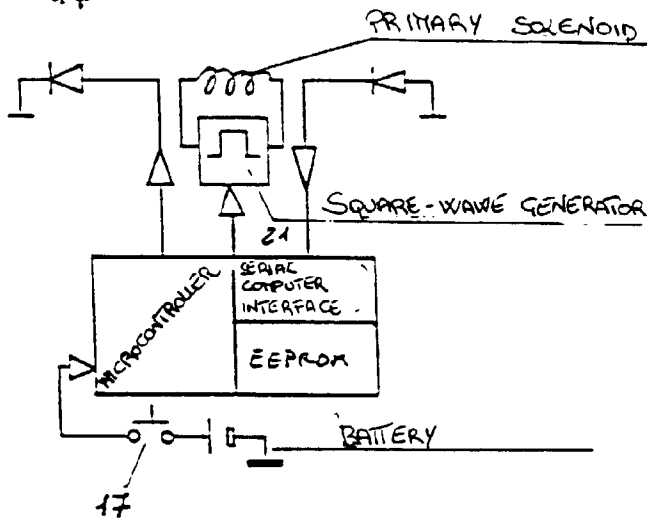 PRIMARY SOLENOID
SQUARE-WAWE GENERATOR
21
MICROCONTROLLER
SERIAL
COMPUTER
INTERFACE
EEPROM
BATTERY
17